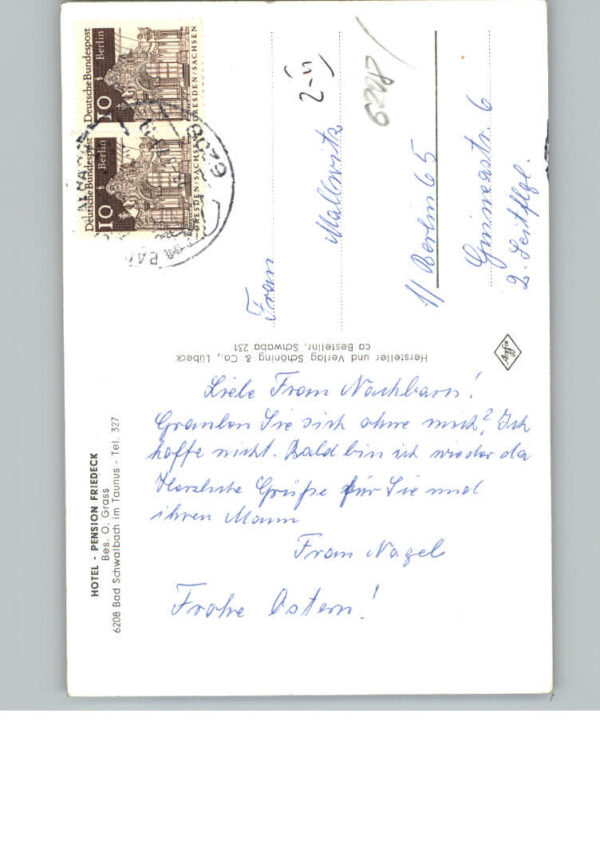 Deutsche Bundespost
Berlin
10
DRESDEN/SACHSEN
Deutsche Bundespost
Berlin
10
DRESDEN/SACHSEN
6208
Frau
Mallwitz
1/ Berlin 65
Guineastr. 6
2. Seitflgl.
Hersteller und Verlag Schöning & Co., Lübeck
ca Bestellnr. Schwaba 231
Agfa
HOTEL - PENSION FRIEDECK
Bes. O. Grass
6208 Bad Schwalbach im Taunus - Tel. 327
Liebe Frau Nachbarn!
Graulen Sie sich ohne mich? Ich
hoffe nicht. Bald bin ich wieder da
Herzliche Grüße für Sie und
ihren Mann
Frau Nagel
Frohe Ostern!